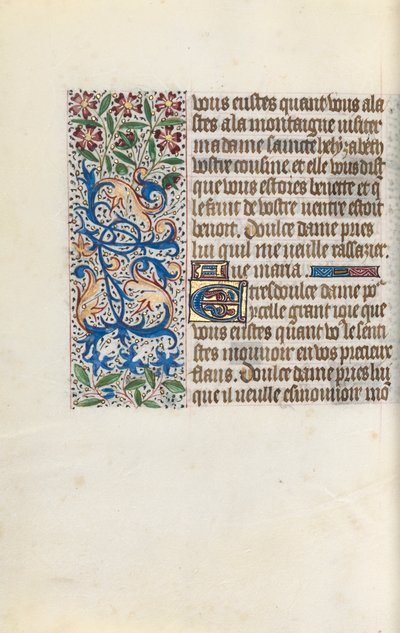 vous eustes quant vous ala
stes a la montaigne visiter
ma dame saincte helyzabeth
vostre cousine et elle vous dist
que vous estoies benette et q
le fruit de vostre ventre estoit
benoit. Doulce dame pries
lui quil me veuille rassasier.
Aue maria
Et tresdoulce dame po
ycelle grant ioie que
vous eustes quant vo le senti
stes mouuoir en vos precieux
flans. Doulce dame pries lui
que il veulle esmouuoir mo